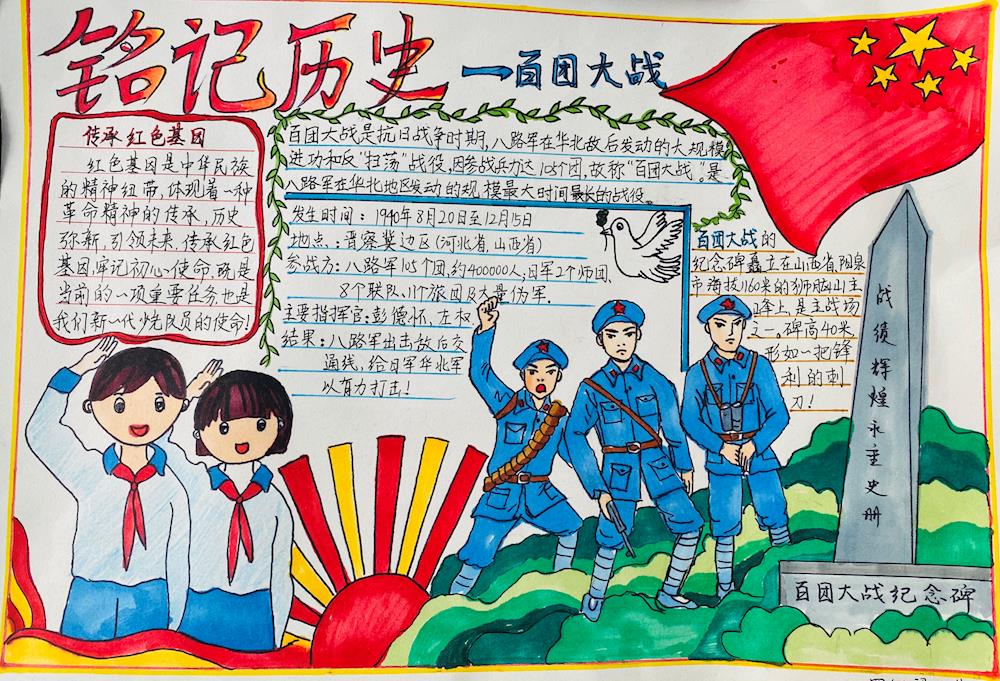 铭记历史
一百团大战
传承红色基因
红色基因是中华民族
的精神纽带,体现着一种
革命精神的传承,历史
弥新,引领未来.传承红色
基因,牢记初心使命,既是
当前的一项重要任务也是
我们新一代少先队员的使命!
百团大战是抗日战争时期,八路军在华北敌后发动的大规模
进功和反"扫荡"战役,因参战兵力达105个团,故称"百团大战"。是
八路军在华北地区发动的规模最大时间最长的战役。
发生时间:1940年8月20日至12月15日
地点:晋察冀边区(河北省,山西省)
参战方:八路军105个团,约400000人,日军2个师团,
8个联队,11个旅团及大量伪军.
主要指挥官:彭德怀、左权
结果:八路军出击敌后交
通线,给日军华北军
以有力打击!
百团大战的
纪念碑矗立在山西省,阳泉
市海拔1160米的狮脑山主
峰上,是主战场
之一,碑高40米
形如一把锋
利的刺
刀!
战绩辉煌永垂史册
百团大战纪念碑